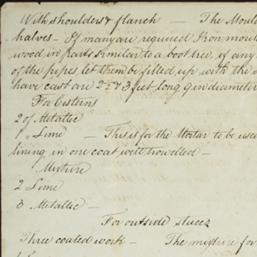 With shoulders & flanch — The Moul
halves — If many are required Iron moul
wood in parts similar to a boot tree, if any
of the pipes let them be filled up with the
have cast are 2 & 3 feet long 9 in diameter
For Cisterns
2 of Metallic
1 Lime — This is for the Mortar to be used
lining in one coat well trowelled —
Mixture
2 Lime
3 Metallic —
For outside stucco
Three coated work — The mixture for